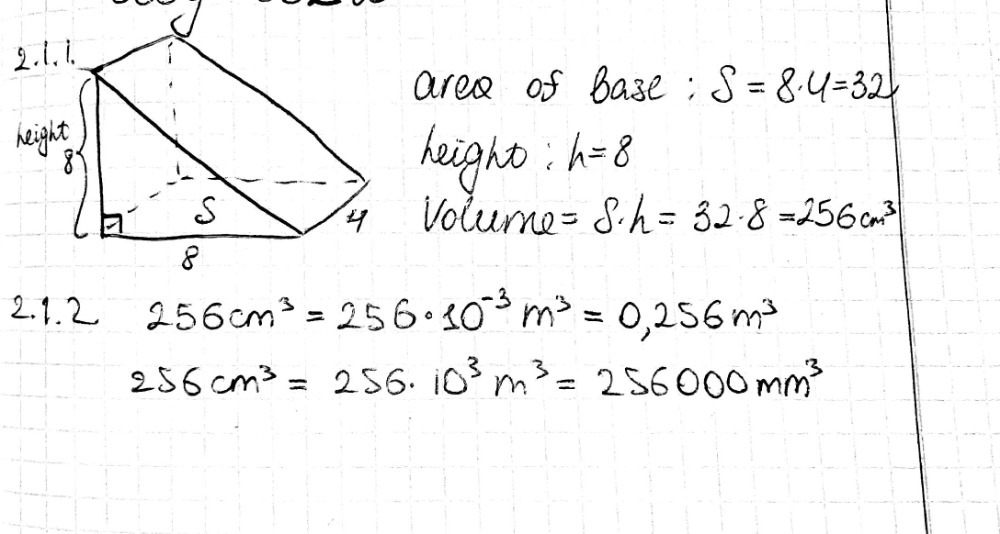 2.1.1.
height
8
S
8
4
area of base : S = 8·4=32
height : h=8
Volume= S·h = 32·8 =256cm³
2.1.2 256cm³ = 256·10⁻³ m³ = 0,256m³
256cm³ = 256·10³ m³ = 256000mm³